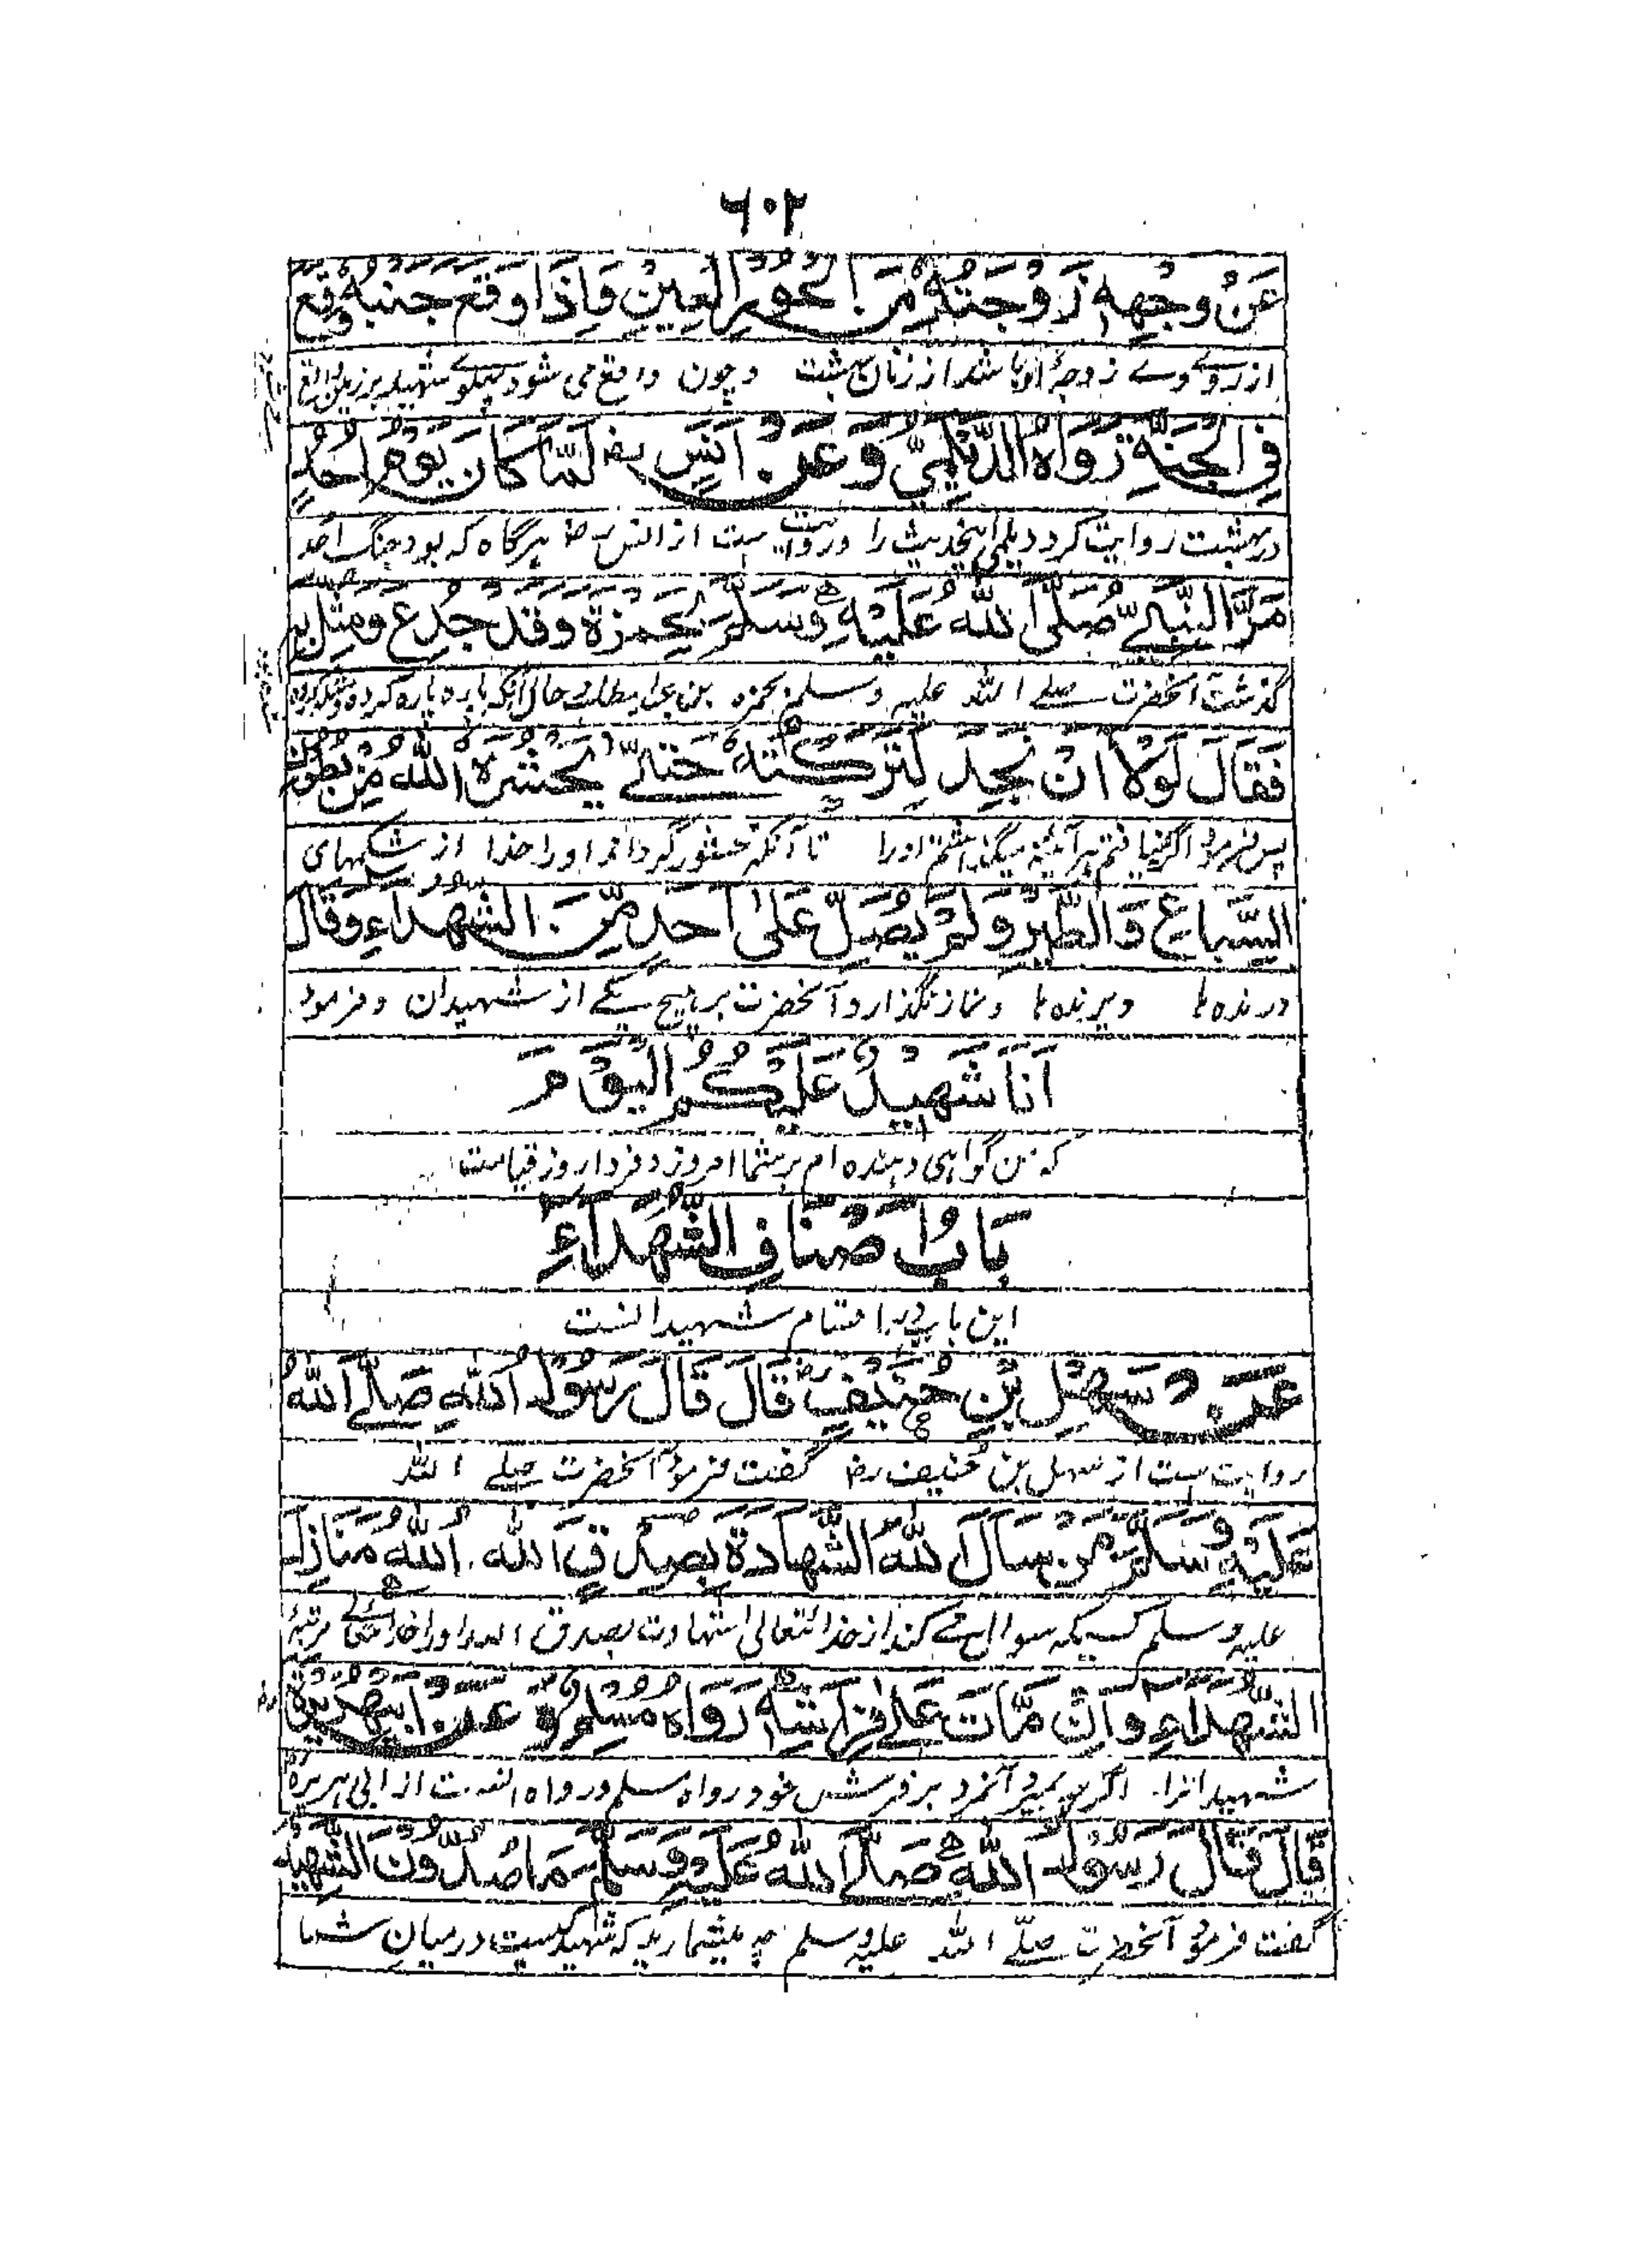 ٦٠٢
عَنْ وَجْهِهٖ زَوْجَتُهٗ مِنَ الْحُوْرِ الْعِيْنِ فَاِذَا وَقَعَ جَنْبُهٗ وَقَعَ
از روے وے زوجۂ او باشد از زنان بهشت و چون واقع می شود پهلوے شهید بر زمین واقع
فِی الْجَنَّةِ رَوَاهُ الدَّيْلَمِیُّ وَعَنْ اَنَسٍ رض لَمَّا كَانَ يَوْمُ اُحُدٍ
در بهشت روایت کرد دیلمی اینحدیث را و روایت ست از انس رض هرگاه که بود جنگ احد
مَرَّ النَّبِیُّ صَلَّی اللّٰهُ عَلَيْهِ وَسَلَّمَ بِحَمْزَةَ وَقَدْ جُدِعَ وَمُثِّلَ بِهٖ
گذشت آنحضرت صلے اللہ علیہ وسلم بحمزہ بن عبدالمطلب حال آنکه پاره پاره کرده
فَقَالَ لَوْلَا اَنْ تَجِدَ لَتَرَكْتُهٗ حَتّٰی يَحْشُرَهُ اللّٰهُ مِنْ بُطُوْنِ
پس فرمود اگر نیافتم هر آئینه میگذاشتم او را تا آنکه محشور گرداند او را خدا از شکمهای
السِّبَاعِ وَالطَّيْرِ وَلَمْ يُصَلِّ عَلٰی اَحَدٍ مِّنَ الشُّهَدَاءِ وَقَالَ
درنده ها و پرنده ها و نماز نگذارد آنحضرت بر هیچ یکے از شهیدان و فرمود
اَنَا شَهِيْدٌ عَلَيْكُمُ الْيَوْمَ
که من گواهی دهنده ام بر شما امروز و فردا روز قیامت
بَابُ اَصْنَافِ الشُّهَدَاءِ
این باب در اقسام شهیدانست
عَنْ سَهْلِ بْنِ حُنَيْفٍ رض قَالَ قَالَ رَسُوْلُ اللّٰهِ صَلَّے اللّٰهُ
روایت ست از سهل بن حنیف رض گفت فرمود آنحضرت صلے اللہ
عَلَيْهِ وَسَلَّمَ مَنْ سَاَلَ اللّٰهَ الشَّهَادَةَ بِصِدْقٍ اللّٰهُ مَنَازِلَ
علیہ وسلم کسیکه سوال می کند از خدا تعالی شهادت بصدق او را خدا تعالی مرتبۂ
الشُّهَدَاءِ وَاِنْ مَّاتَ عَلٰے فِرَاشِهٖ رَوَاهُ مُسْلِمٌ وَ عَنْ اَبِیْ هُرَيْرَةَ رض
شهیدانرا اگر بمیرد آنمرد بر فرش خود رواه مسلم از ابی هریره
قَالَ قَالَ رَسُوْلُ اللّٰهِ صَلَّے اللّٰهُ عَلَيْهِ وَسَلَّمَ مَا تَعُدُّوْنَ الشَّهِيْدَ
گفت فرمود آنحضرت صلّے اللہ علیہ وسلم چه میشمارید که شهید کیست درمیان شما